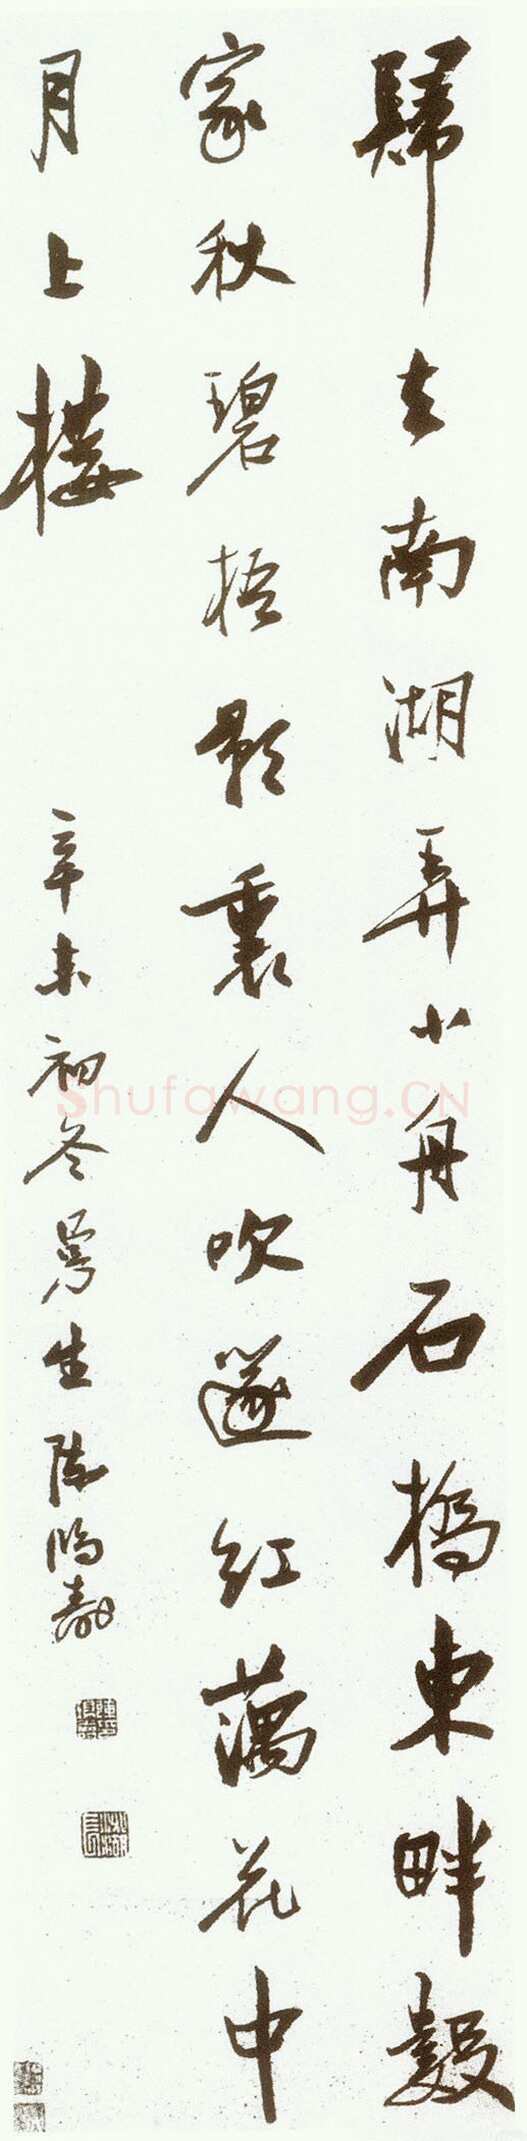 歸去南湖弄小舟石橋東畔數
家秋碧梧影裏人吹邃紅藕花中
月上樓
辛未初冬曼生陳鴻壽
Shufawang.CN